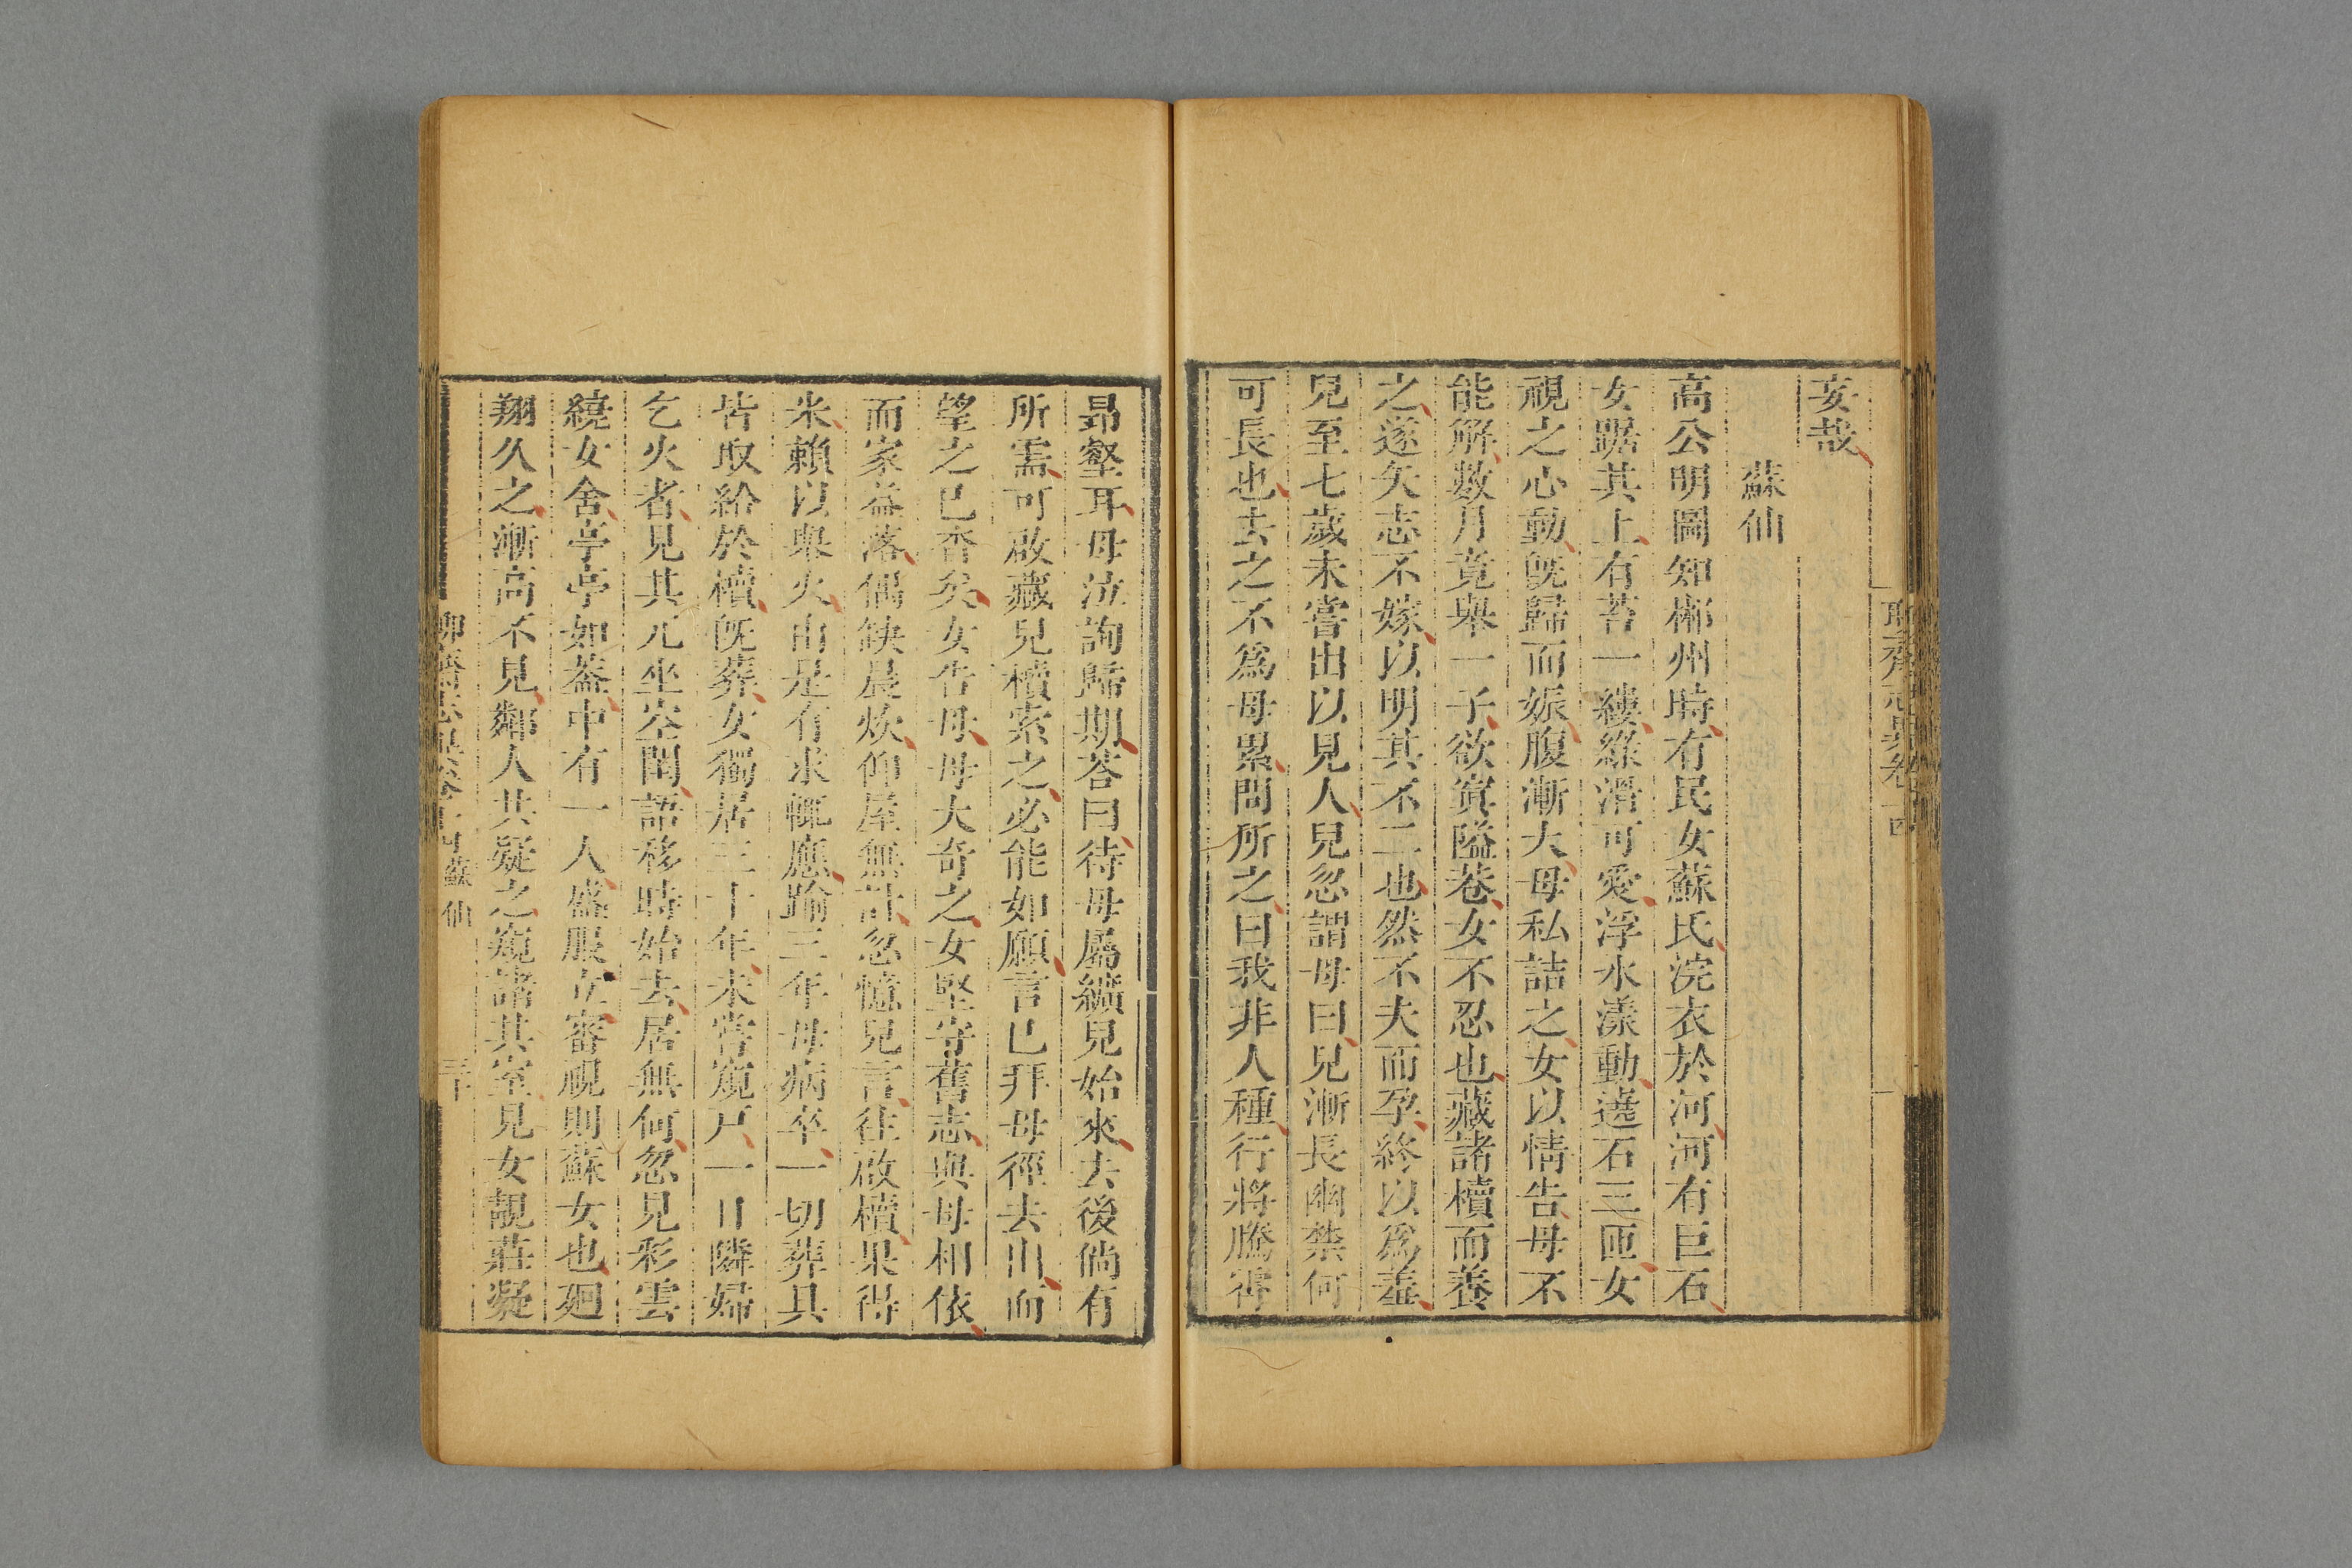 聊齋志異卷十四
妄哉
蘇仙
高公明圖知郴州時有民女蘇氏浣衣於河河有巨石
女踞其上有苔一縷綠滑可愛浮水漾動遶石三匝女
視之心動旣歸而娠腹漸大母私詰之女以情告母不
能解數月竟舉一子欲寘隘巷女不忍也藏諸櫝而養
之遂矢志不嫁以明其不二也然不夫而孕終以爲羞
兒至七歲未嘗出以見人兒忽謂母曰兒漸長幽禁何
可長也去之不爲母累問所之曰我非人種行將騰霄
昻壑耳母泣詢歸期荅曰待母屬纊兒始來去後倘有
所需可啟藏兒櫝索之必能如願言已拜母徑去出而
望之已杳矣女告母母大奇之女堅守舊志與母相依
而家益落偶缺晨炊仰屋無計忽憶兒言往啟櫝果得
米賴以舉火由是有求輒應踰三年母病卒一切葬具
皆取給於櫝旣葬女獨居三十年未嘗窺戸一日隣婦
乞火者見其兀坐空閨語移時始去居無何忽見彩雲
繞女舍亭亭如葢中有一人盛服立審視則蘇女也廻
翔久之漸高不見鄰人共疑之窺諸其室見女靚莊凝
蘇仙
三十